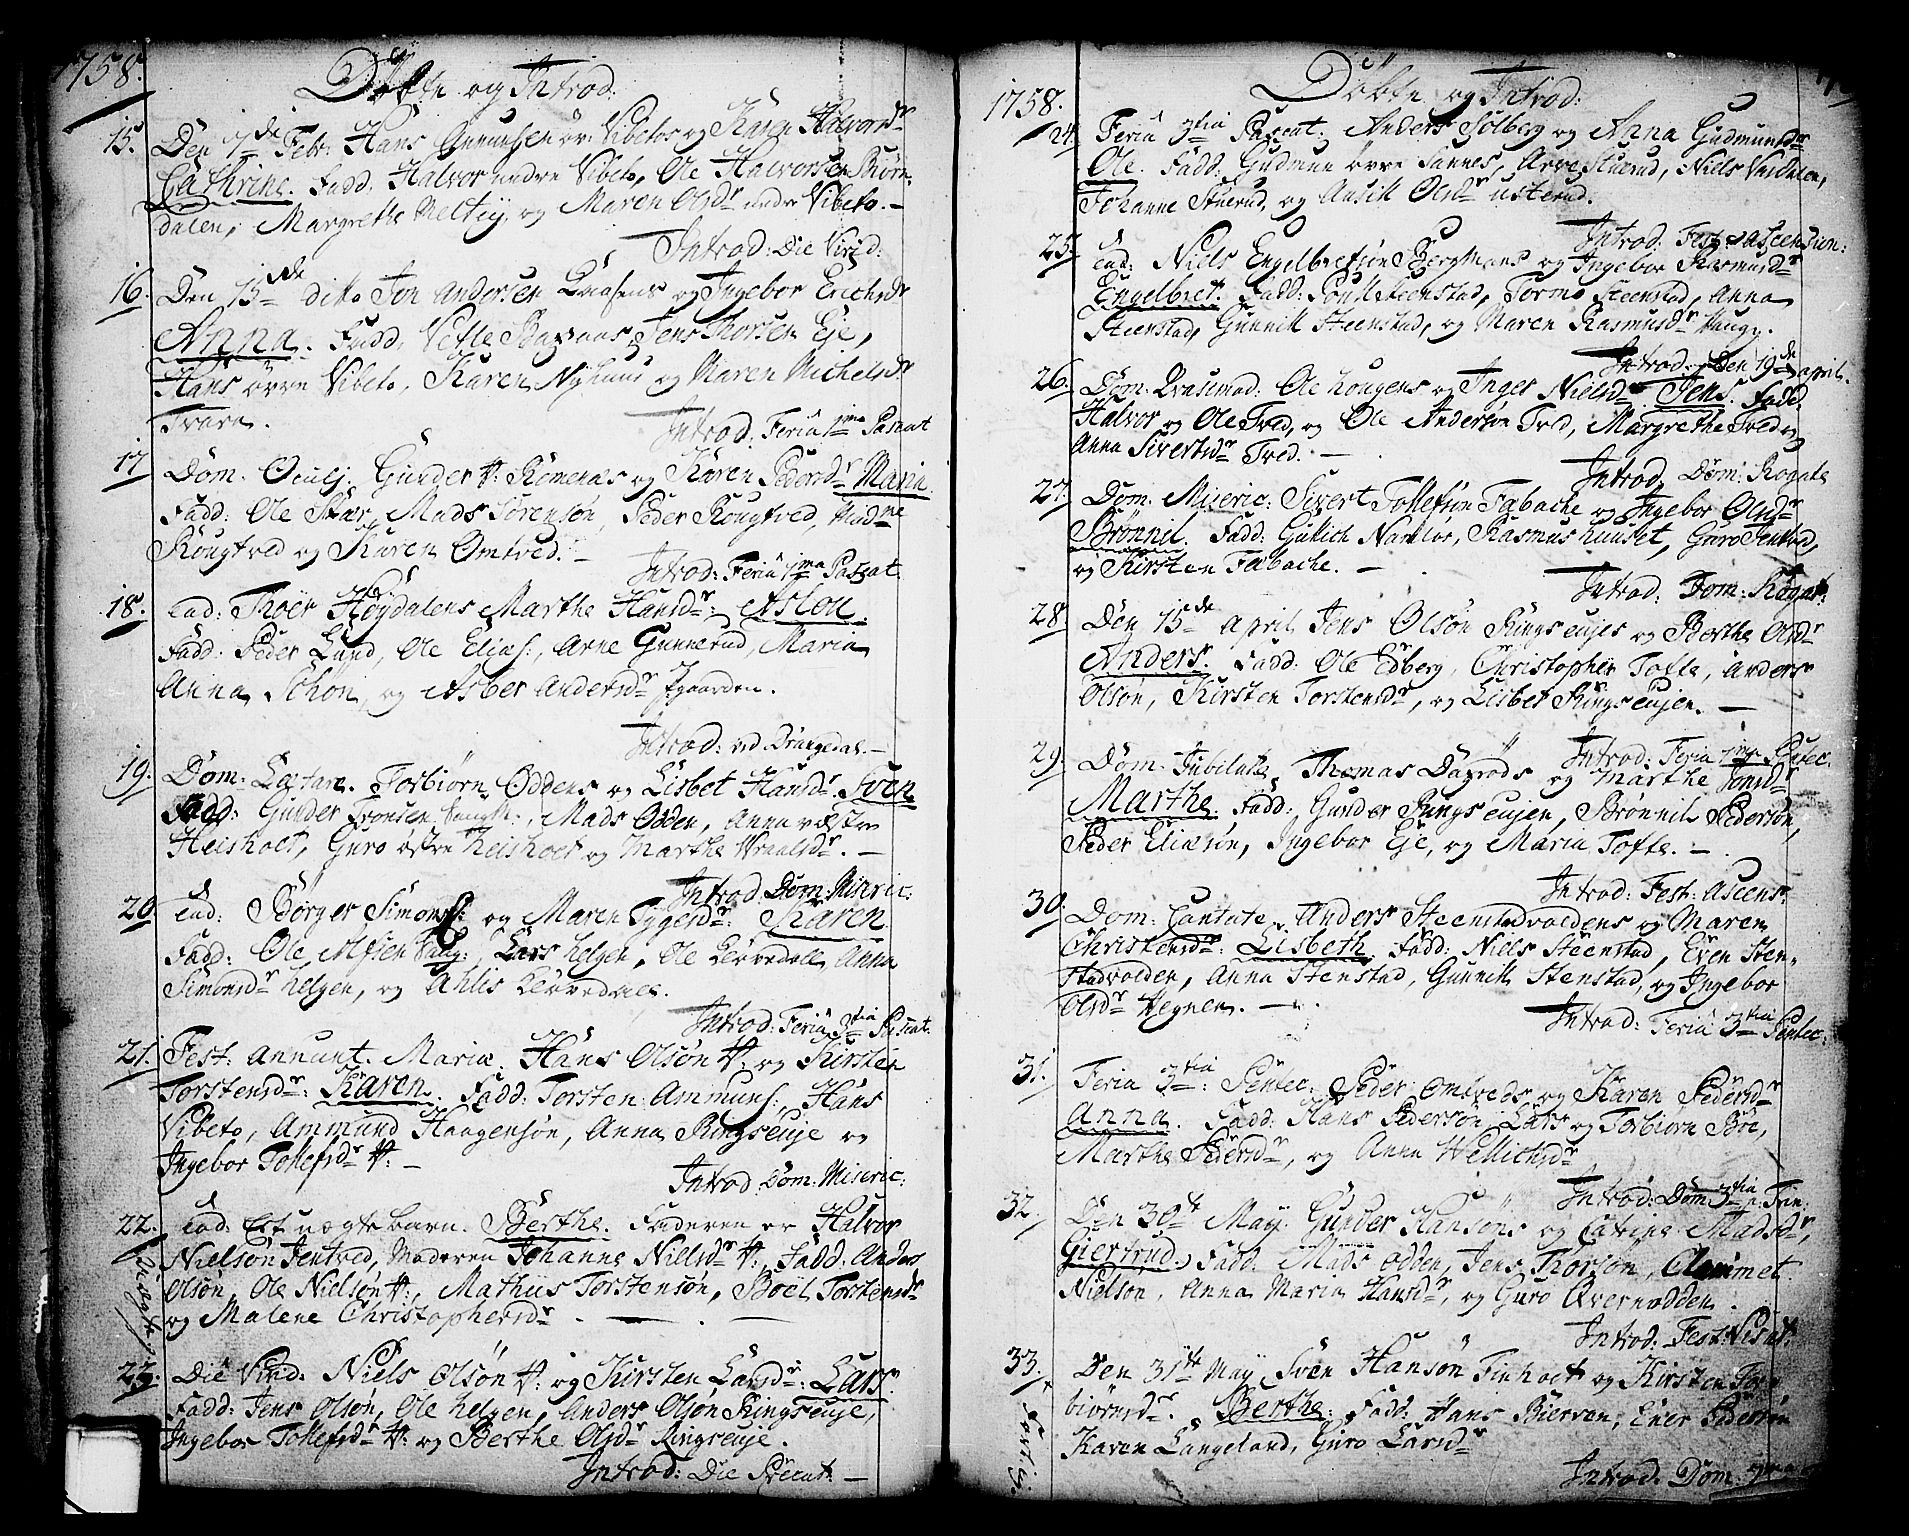 1758.
Döbte og Introd:
15. Den 7de Febr: Hans Gunnulsen övr: Vibetos og Karen Halvorsdr
Cathrine. Fadd: Halvor nedre Vibeto, Ole Halvorsen Biørn-
dalen, Margrethe Meltiy, og Maren Olsdr nedre Vibeto. -
Introd: Die Virid:
16. Den 13de dito Jon Andersen og Ingebor Erichsdr
Anna. Fadd: Vetle Jens Thorsen Eje,
Hans övre Vibeto, Karen Nyhuus og Maren Michelsdr
Introd: Feria 1ma Pascat
17 Dom. Oculj. Gunder Romenæs og Karen Pedersdr Maria
Fadd: Ole Skær, Mads Sörensön, Peder Rougtved, Madme
Rougtved og Karen Omtved. -
Introd: Feria 1ma Pascat.
18. Eod: Thoer Höydalens Marthe Hansdr: Aslou
Fadd: Peder Lund, Ole Elias:, Arne Gunnerud, Maria
Anna Schön, og Asber Andersdr
Introd: ved Drangedal. -
19. Dom: Lætare. Torbiörn Oddens og Lisbet Hansdr. Sven
Fadd: Gunder Tronsen, Mads Odden, Anna væstre
Heisholt, Guro östre Heisholt og Marthe Wraalsdr. -
Introd Dom: Miseric:
20. Eod: Börger Simons: og Maren Tygesdr: Karen
Fadd: Ole Alfsen Saug:, Lars Helgen, Ole Klövedall, Anna
Simonsdr Helgen, og Ahlis Klövedall.
Introd: Feria 3tia Pascat.
21. Fest: Annunt. Mariæ. Hans Olsön og Kirsten
Torstensdr: Karen. Fadd: Torsten Ammuns:, Hans
Vibeto, Ammund Haagensön, Anna Ringseuje og
Ingebor Tollefsdr. -
Introd: Dom: Miseric:
22. Eod: Ert uægte barn. Berthe. Faderen er Halvor
Nielsön Jentved, Moderen Johanne Nielsdr, Fadd: Anders
Olsön, Ole Nielsön, Mathiis Torstensön, Boel Torstensdr
og Malene Christophersdr. -
Uægte
23. Die Virid: Niels Olsön og Kirsten Larsdr: Lars.
Fadd: Jens Olsön, Ole Helgen, Anders Olsön Ringseuje,
Ingebor Tollefsdr og Berthe Olsdr Ringseuje.
Introd: Die Precat: -
Döbte og Introd:
1758.
24. Feria 3tia Pascat: Anders Solberg og Anna Gudmundsdr
Ole. Fadd: Gudmun övre Sannes, Arve Stuerud, Niels
Johanne Stuerud, og Ansik Olsdr usterud.
Introd: Fest: Ascension:
25. Eod: Niels Engelbretsön Bergmans og Ingebor Rasmusdr
Engelbret. Fadd: Poul Steenstad, Tormo Steenstad, Anna
Steenstad, Gunnill Steenstad, og Maren Rasmusdr Haugy.
Introd: Den 19de april.
26. Dom: Qvasimod: Ole Hougens og Inger Nielsdr Jens. Fadd:
Halvor og Ole Tved, og Ole Andersön Tved, Margrethe Tved og
Anna Sivertsdr Tved. -
Introd. Dom: Rogate
27. Dom: Miseric: Sivert Tollefsön Fabache og Ingebor Olsdr
Brönnil. Fadd: Gullich Namlös, Rasmus huuset, Guro Jentved,
og Kirsten Fabache. -
Introd: Dom: Rogat:
28. Den 15de April Jens Olsön Ringseujes og Berthe Olsdr
Anders. Fadd: Ole Edberg, Christopher Tofte, Anders
Olsön, Kirsten Torstensdr, og Lisbet Ringseujen. -
Introd: Feria 1ma Pentec.
29. Dom. Jubilate. Thomas Dagröds og Marthe Jonsdr
Marthe. Fadd: Gunder Ringseujen, Brönnil Pedersön,
Peder Eliæsön, Ingebor Eje, og Maria Tofte. -
Introd: Fest: Ascens:
30. Dom: Cantate. Anders Steenstadvoldens og Maren
Christensdr: Lisbeth. Fadd: Niels Steenstad, Even Sten-
stadvolden, Anna Stenstad, Gunnill Stenstad, og Ingebor
Olsdr Hegnen. -
Introd: Feria 3tia Pentec:
31. Feria 3tia: Pentec: Peder Omtveds og Karen Pedersdr
Anna. Fadd: Hans Pedersön, Lars og Torbiorn Böe,
Marthe Pedersdr, og Anne Wellichsdr
Introd: Dom 3tia Trin:
32. Den 30te May Gunder Hansöns og Catrine Madsdr,
Giertrud. Fadd. Mads Odden, Jens Thorsön, Clemmet
Nielsön, Anna Maria Hansdr, og Guro Overnodden.
Introd: Fest: Visit:
33. Den 31te May Sven Hansön Finholt og Kirsten Tor-
biörnsdr. Berthe. Fadd: Hans Bierven, Ener Pedersön
Karen Langeland, Guro Larsdr
Introd: Dom.